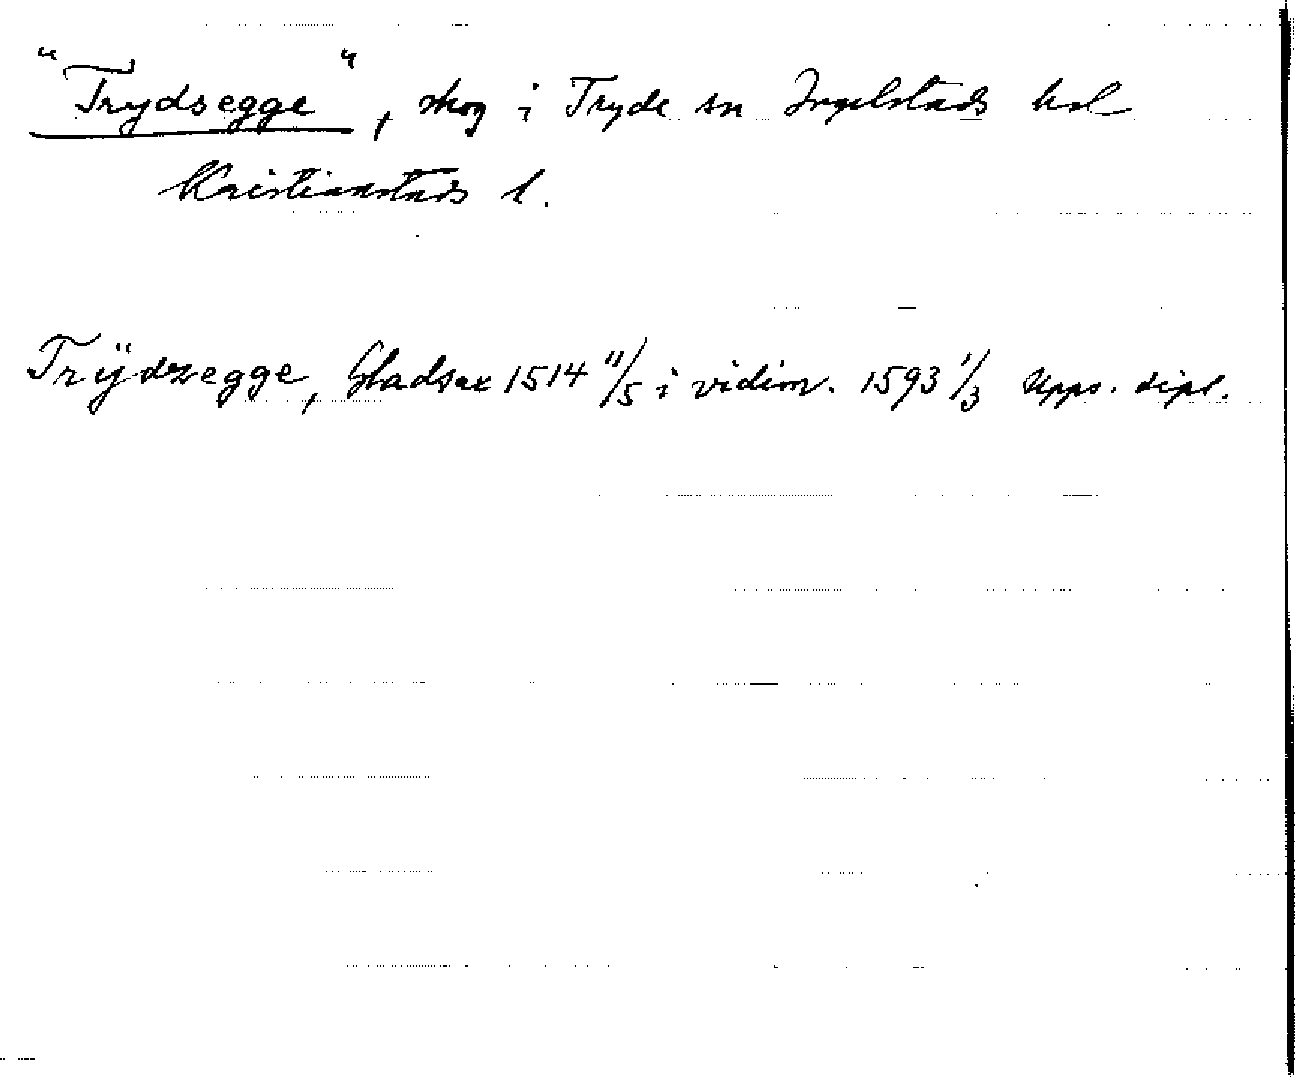 "Trydsegge", skog i Tryde sn Ingelstads hd
Kristianstads l.
Trÿdzegge, Gladsax 1514 11/5 i vidim. 1593 1/3 Upps. dipl.